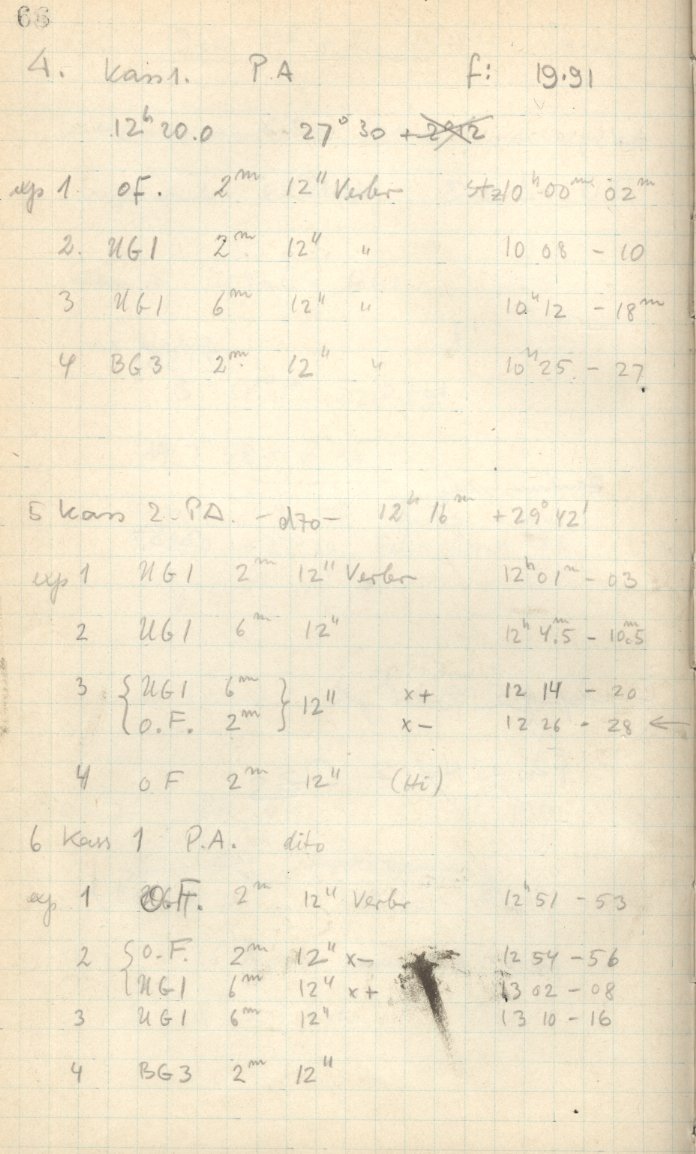 66
4. Kass 1. P.A f: 19.91
12ʰ 20.0 27° 30 + 2912
exp 1 o F. 2ᵐ 12" Verbr Stz 10ʰ 00ᵐ 02ᵐ
2. UG1 2ᵐ 12" " 10 08 - 10
3 UG1 6ᵐ 12" " 10ʰ 12 - 18ᵐ
4 BG3 2ᵐ 12" " 10ʰ 25 - 27
5 Kass 2. P.A. - dto - 12ʰ 16ᵐ + 29° 42'
exp 1 UG1 2ᵐ 12" Verbr 12ʰ 01ᵐ - 03
2 UG1 6ᵐ 12" 12ʰ 4.5ᵐ - 10.5ᵐ
3 { UG1 6ᵐ } 12" x+ 12 14 - 20
{ O.F. 2ᵐ } x- 12 26 - 28 ←
4 o F 2ᵐ 12" (Hi)
6 Kass 1 P.A. dito
exp. 1 O.F. 2ᵐ 12" Verbr 12ʰ 51 - 53
2 { O.F. 2ᵐ 12" x- 12 54 - 56
{ UG1 6ᵐ 12" x+ 13 02 - 08
3 UG1 6ᵐ 12" 13 10 - 16
4 BG3 2ᵐ 12"